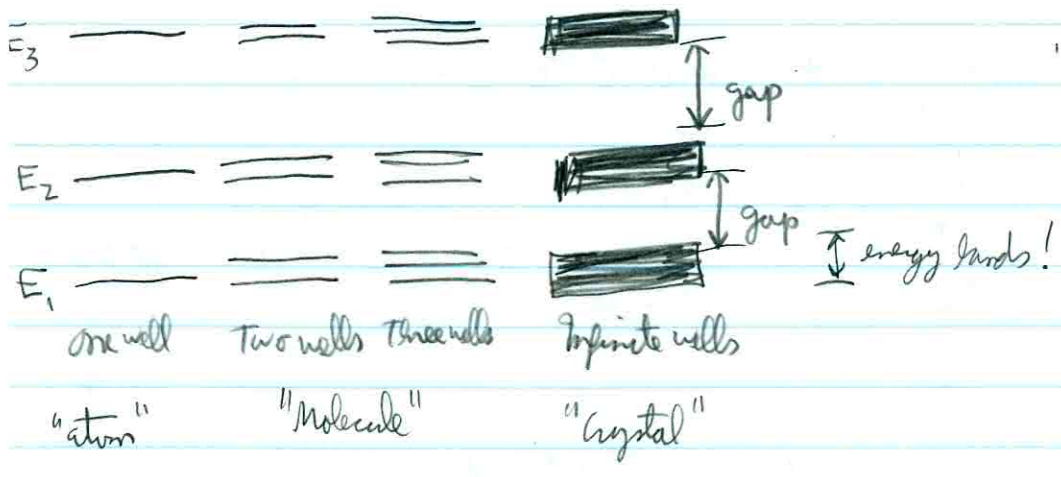 E3
gap
E2
gap
energy bands!
E1
one well Two wells Three wells Infinite wells
"atom" "Molecule" "Crystal"